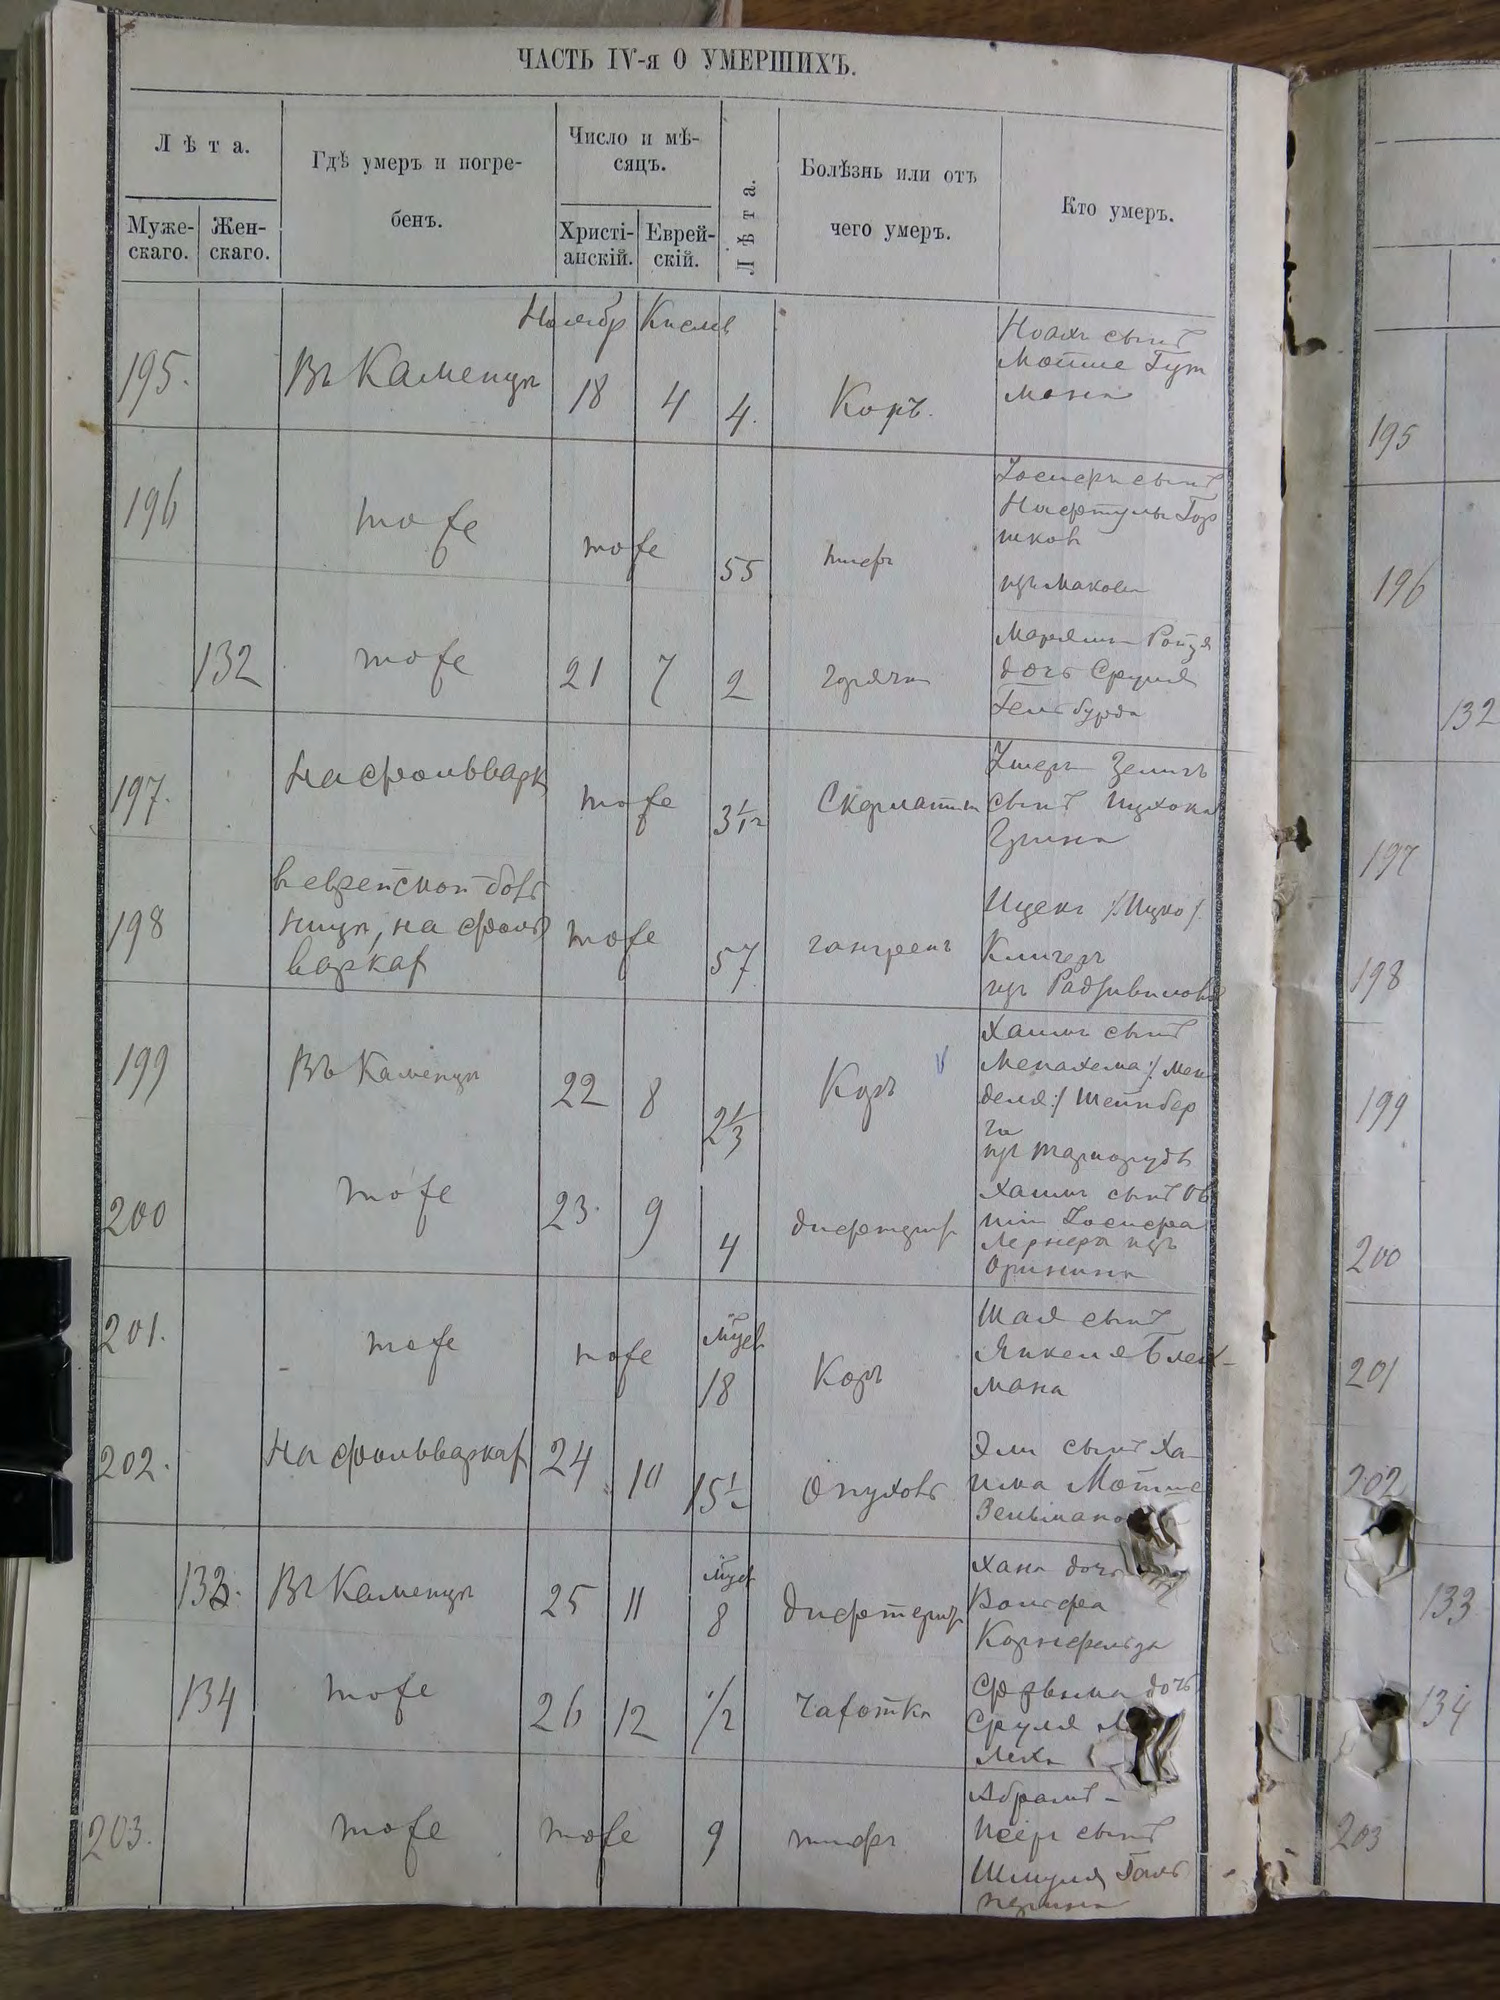 ЧАСТЬ IV-я О УМЕРШИХЪ.
Лѣта.
Мужескаго.
Женскаго.
Гдѣ умеръ и погребенъ.
Число и мѣсяцъ.
Христіанскій.
Еврейскій.
Лѣта.
Болѣзнь или отъ чего умеръ.
Кто умеръ.
Ноябр Кислев
195. Въ Каменцѣ 18 4 4. Корь.
Ноахъ сынъ
Мошше Гут
мана
196 тоже тоже 55 тифъ
Іосифъ сынъ
Нафтулы Гор
шков
изъ Макова
132 тоже 21 7 2 горячка
Маріямъ Ройзя
дочь Сруля
Гельбурда
197. На фольварк тоже 3 1/2 Скарлатина
Зелигъ
сынъ Ицхока
Грина
198
в еврейской боль
ницѣ, на фоль
варках
тоже 57 гангрена
Ицекъ /:Ицко/.
Клигеръ
изъ Радзивилова
199 Въ Каменцѣ 22 8 2 1/3 Корь
Хаимъ сынъ
Менахема /:Мен
деля:/ Штейнбер
га
из Жарнорудъ
200 тоже 23. 9 4 дифтерит
Хаимъ сынъ Ов
шія Іосифа
Лернера изъ
Оринина
201. тоже тоже мѣсц 18 Корь
Шая сынъ
Янкеля Блех-
мана
202. На фольварках 24 10 15 1/2 Опухоль
Эли сынъ Ха-
има Мошше
Зельмано
133. Въ Каменцѣ 25 11 мѣсц 8 дифтерит
Хана дочь
Вольфа
Корнфельда
134 тоже 26 12 1/2 Чахотка
дочь
Сруля М
леха
203. тоже тоже 9 тифъ
Абрамъ-
Исеръ сынъ
Шмуля Галь
перина
195
196
132
197
198
199
200
201
202
133
134
203